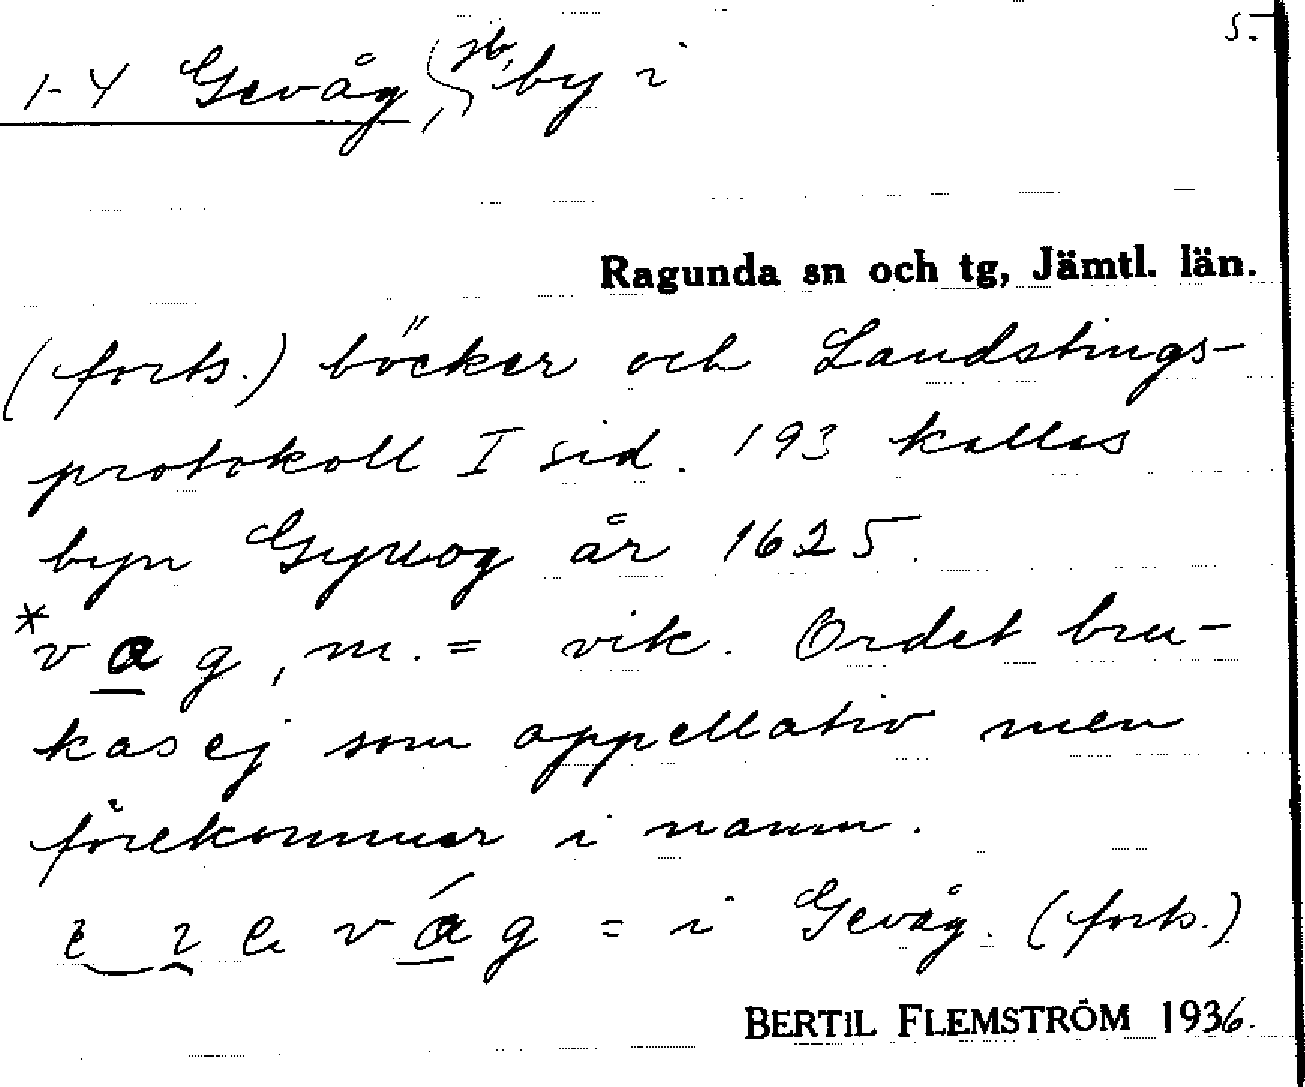 5.
1-4 Gevåg, jb, by i
Ragunda sn och tg, Jämtl. län.
(forts.) böcker och Landstings-
protokoll I sid. 193 kallas
byn Gyuog år 1625.
*vag, m. = vik. Ordet bru-
kas ej som appellativ men
förekommer i namn.
evág = i Gevåg. (forts.)
BERTIL FLEMSTRÖM 1936.